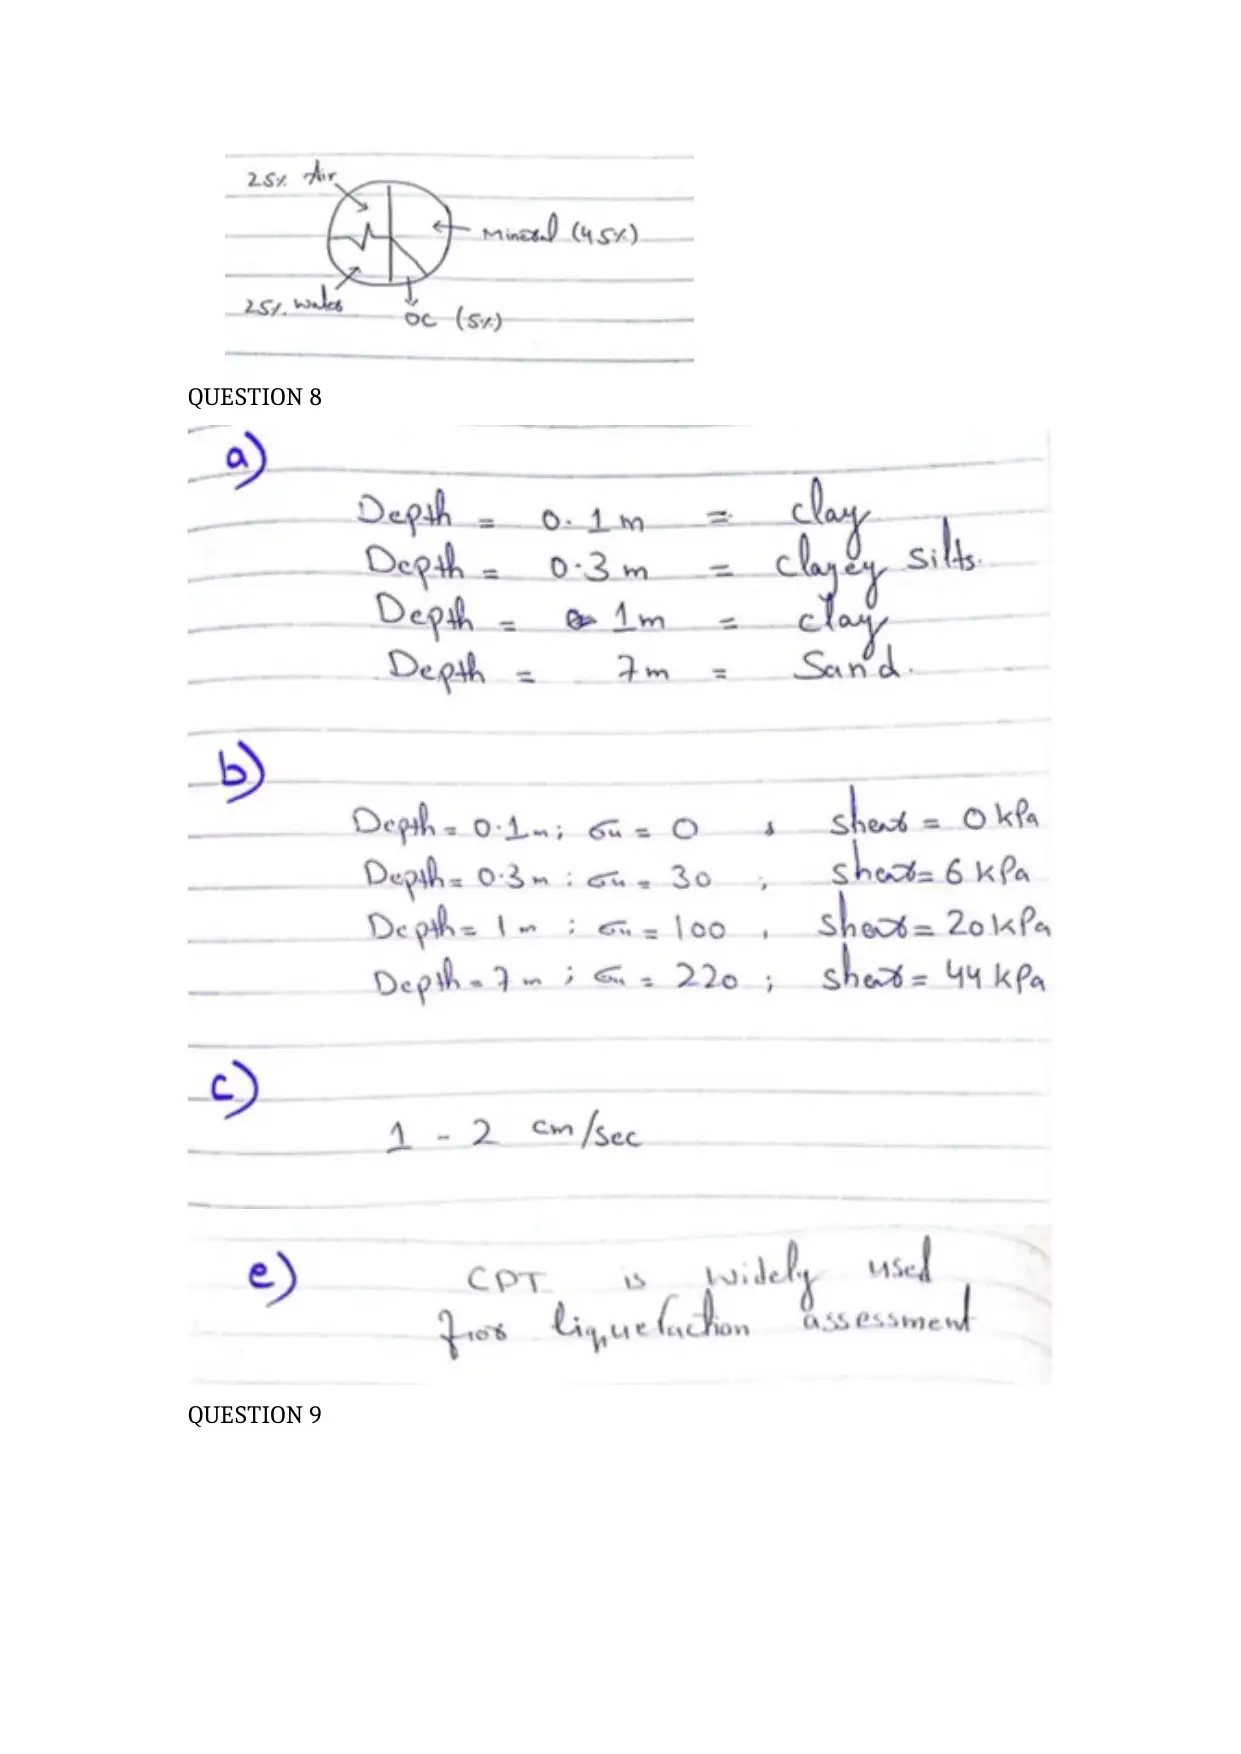 25% Air
Mineral (45%)
25% Water
OC (5%)
QUESTION 8
a)
Depth = 0.1m = clay
Depth = 0.3m = clayey silts.
Depth = 1m = clay
Depth = 7m = Sand.
b)
Depth = 0.1m; σu = 0 ; shear = 0 kPa
Depth = 0.3m ; σu = 30 ; shear = 6 kPa
Depth = 1m ; σu = 100 , shear = 20 kPa
Depth = 7m ; σu = 220 ; shear = 44 kPa
c)
1 - 2 cm/sec
e) CPT is widely used
for liquefaction assessment
QUESTION 9